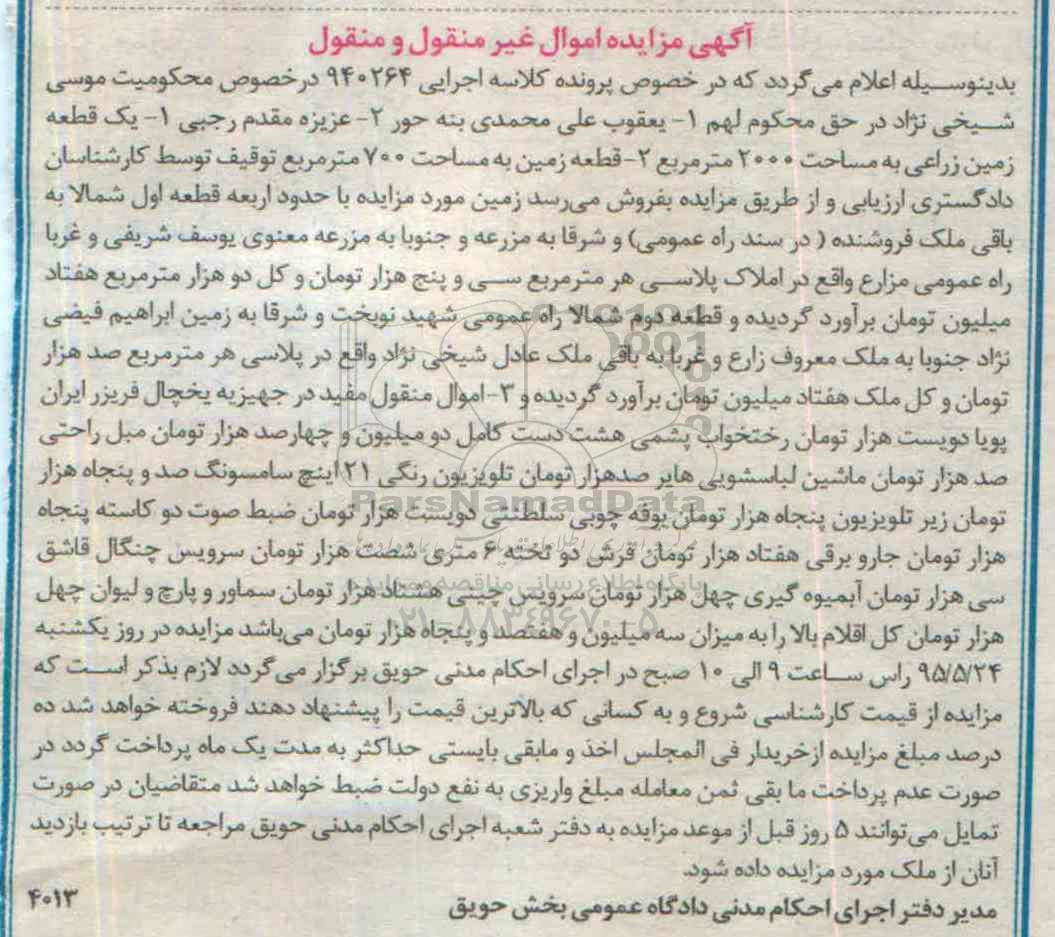 آگهی مزایده اموال غیر منقول و منقول
بدینوسیله اعلام می‌گردد که در خصوص پرونده کلاسه اجرایی ۹۴۰۲۶۴ درخصوص محکومیت موسی
شیخی نژاد در حق محکوم لهم ۱- یعقوب علی محمدی بنه حور ۲- عزیزه مقدم رجبی ۱- یک قطعه
زمین زراعی به مساحت ۲۰۰۰ مترمربع ۲-قطعه زمین به مساحت ۷۰۰ مترمربع توقیف توسط کارشناسان
دادگستری ارزیابی و از طریق مزایده بفروش می‌رسد زمین مورد مزایده با حدود اربعه قطعه اول شمالا به
باقی ملک فروشنده ( در سند راه عمومی) و شرقا به مزرعه و جنوبا به مزرعه معنوی یوسف شریفی و غربا
راه عمومی مزارع واقع در املاک پلاسی هر مترمربع سی و پنج هزار تومان و کل دو هزار مترمربع هفتاد
میلیون تومان برآورد گردیده و قطعه دوم شمالا راه عمومی شهید نوبخت و شرقا به زمین ابراهیم فیضی
نژاد جنوبا به ملک معروف زارع و غربا به باقی ملک عادل شیخی نژاد واقع در پلاسی هر مترمربع صد هزار
تومان و کل ملک هفتاد میلیون تومان برآورد گردیده و ۳-اموال منقول مفید در جهیزیه یخچال فریزر ایران
پویا دویست هزار تومان رختخواب پشمی هشت دست کامل دو میلیون و چهارصد هزار تومان مبل راحتی
صد هزار تومان ماشین لباسشویی هایر صدهزار تومان تلویزیون رنگی ۲۱ اینچ سامسونگ صد و پنجاه هزار
تومان زیر تلویزیون پنجاه هزار تومان بوفه چوبی سلطنتی دویست هزار تومان ضبط صوت دو کاسته پنجاه
هزار تومان جارو برقی هفتاد هزار تومان فرش دو تخته ۶ متری شصت هزار تومان سرویس چنگال قاشق
سی هزار تومان آبمیوه گیری چهل هزار تومان سرویس چینی هشتاد هزار تومان سماور و پارچ و لیوان چهل
هزار تومان کل اقلام بالا را به میزان سه میلیون و هفتصد و پنجاه هزار تومان می‌باشد مزایده در روز یکشنبه
۹۵/۵/۲۴ راس ساعت ۹ الی ۱۰ صبح در اجرای احکام مدنی حویق برگزار می‌گردد لازم بذکر است که
مزایده از قیمت کارشناسی شروع و به کسانی که بالاترین قیمت را پیشنهاد دهند فروخته خواهد شد ده
درصد مبلغ مزایده ازخریدار فی المجلس اخذ و مابقی بایستی حداکثر به مدت یک ماه پرداخت گردد در
صورت عدم پرداخت ما بقی ثمن معامله مبلغ واریزی به نفع دولت ضبط خواهد شد متقاضیان در صورت
تمایل می‌توانند ۵ روز قبل از موعد مزایده به دفتر شعبه اجرای احکام مدنی حویق مراجعه تا ترتیب بازدید
آنان از ملک مورد مزایده داده شود.
مدیر دفتر اجرای احکام مدنی دادگاه عمومی بخش حویق
۴۰۱۳
ParsNamadData
پایگاه اطلاع رسانی مناقصه و مزایده
۰۲۱-۸۸۳۴۹۶۷۰-۵